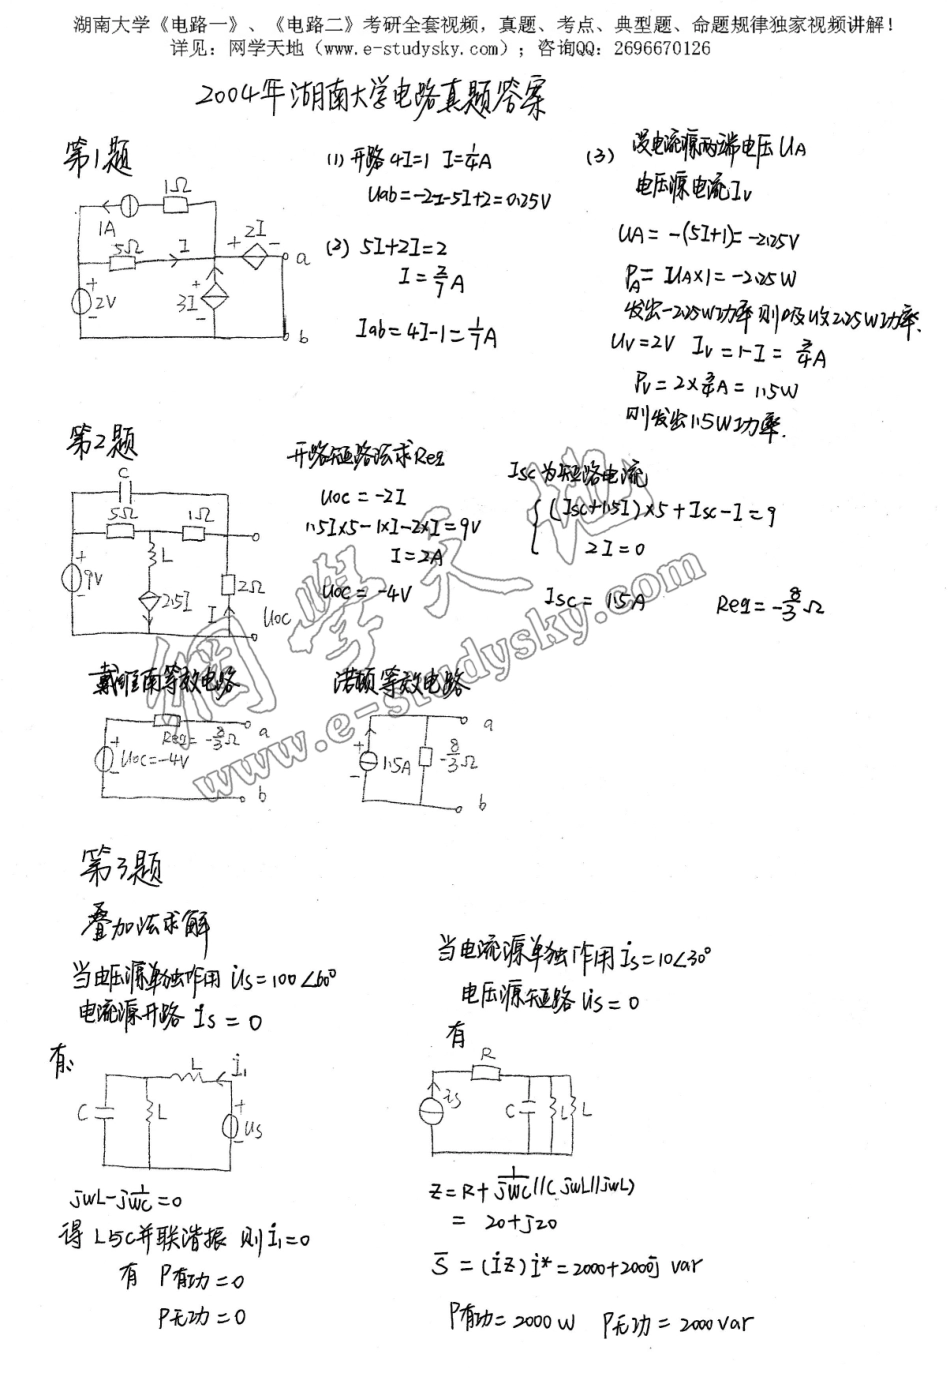 湖南大学《电路一》、《电路二》考研全套视频，真题、考点、典型题、命题规律独家视频讲解！
详见：网学天地（www.e-studysky.com）；咨询QQ：2696670126
2004年湖南大学电路真题答案
第1题
1Ω
1A
5Ω
I
+ 2I -
a
+
2V
-
+
3I
-
b
(1) 开路 4I=1 I=¼A
Uab=-2I-5I+2=0.25V
(2) 5I+2I=2
I=2/7 A
Iab=4I-1=1/7 A
(3) 设电流源两端电压UA
电压源电流Iv
UA=-(5I+1)=-2.25V
PA=UA×1=-2.25W
发出-2.25W功率则吸收2.25W功率.
Uv=2V Iv=1-I=3/4 A
Pv=2×3/4 A=1.5W
则发出1.5W功率.
第2题
C
5Ω
1Ω
L
+
9V
-
2.5I
I
2Ω
Uoc
开路短路法求Req
Uoc=-2I
1.5I×5-1×I-2×I=9V
I=2A
Uoc=-4V
Isc为短路电流
{(Isc+1.5I)×5+Isc-I=9
2I=0
Isc=1.5A Req=-8/3 Ω
戴维南等效电路
Req=-8/3 Ω
a
+
Uoc=-4V
-
b
诺顿等效电路
a
+
1.5A
-
-8/3 Ω
b
網學天地
www.e-studysky.com
第3题
叠加法求解
当电压源单独作用 U̇s=100∠60°
电流源开路 İs=0
有:
L
İ1
C
L
+
Us
-
jωL-j1/ωC=0
得 L与C并联谐振 则İ1=0
有 P有功=0
P无功=0
当电流源单独作用 İs=10∠30°
电压源短路 U̇s=0
有
R
is
C
L
L
Z=R+1/jωC//(jωL//jωL)
=20+j20
S̄=(İZ)İ*=2000+2000j var
P有功=2000W P无功=2000var